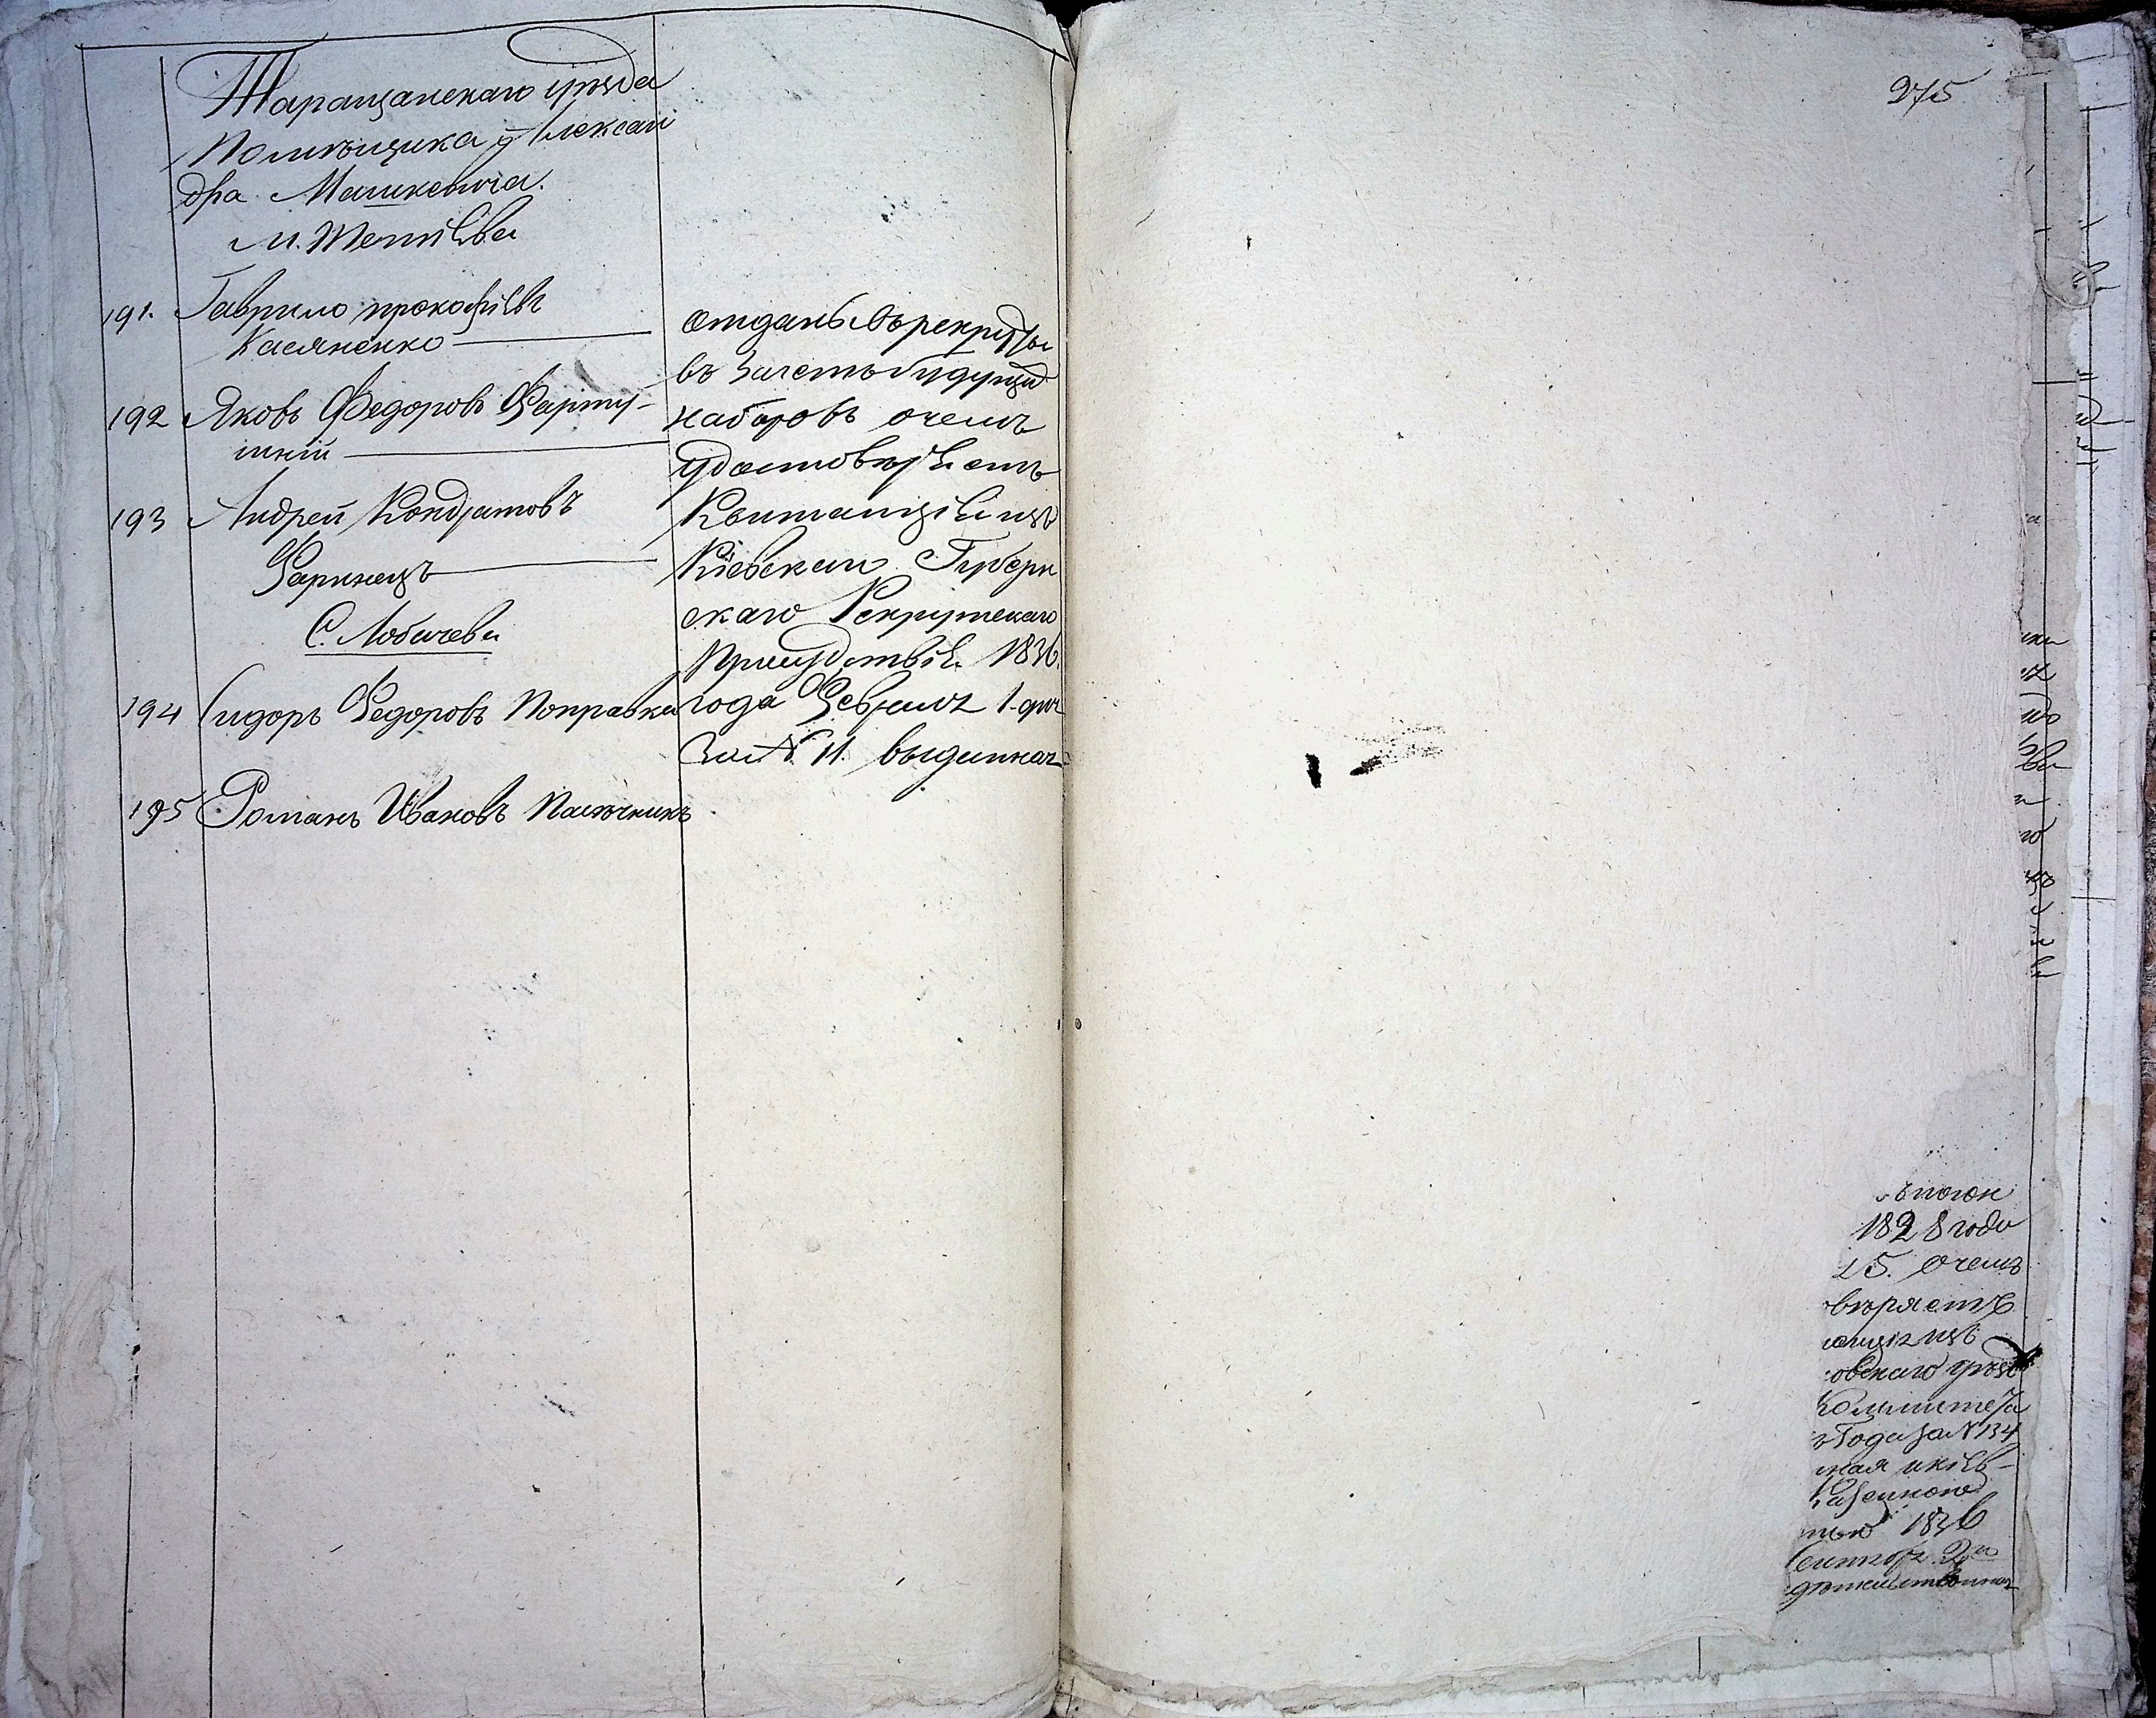 Таращанскаго уѣзда
Помѣщика Алексан
дра Машкевича.
М. Тетіева
191. Гаврило прокофіевъ
Касяненко
192 Яковъ Федоровъ Фарту-
шній
193 Андрей Кондратовъ
Фаринецъ
С. Лобачева
194 Сидоръ Федоровъ Поправка
195 Романъ Ивановъ Пасѣчникъ
отданы въ рекруты
въ зачетъ будущих
наборовъ о чемъ
удостовѣряетъ
Квитанція изъ
Кіевскаго Губерн
скаго Рекрутскаго
Присудствія 1836
года Февраля 1 дня
за № 11. выданная
275
1828 года
15. о чемъ
вѣряетъ
изъ
овскаго уѣзд
Комитета
Года за № 134
ная и кіев-
Казенною
тою 1836
Сентября 2го